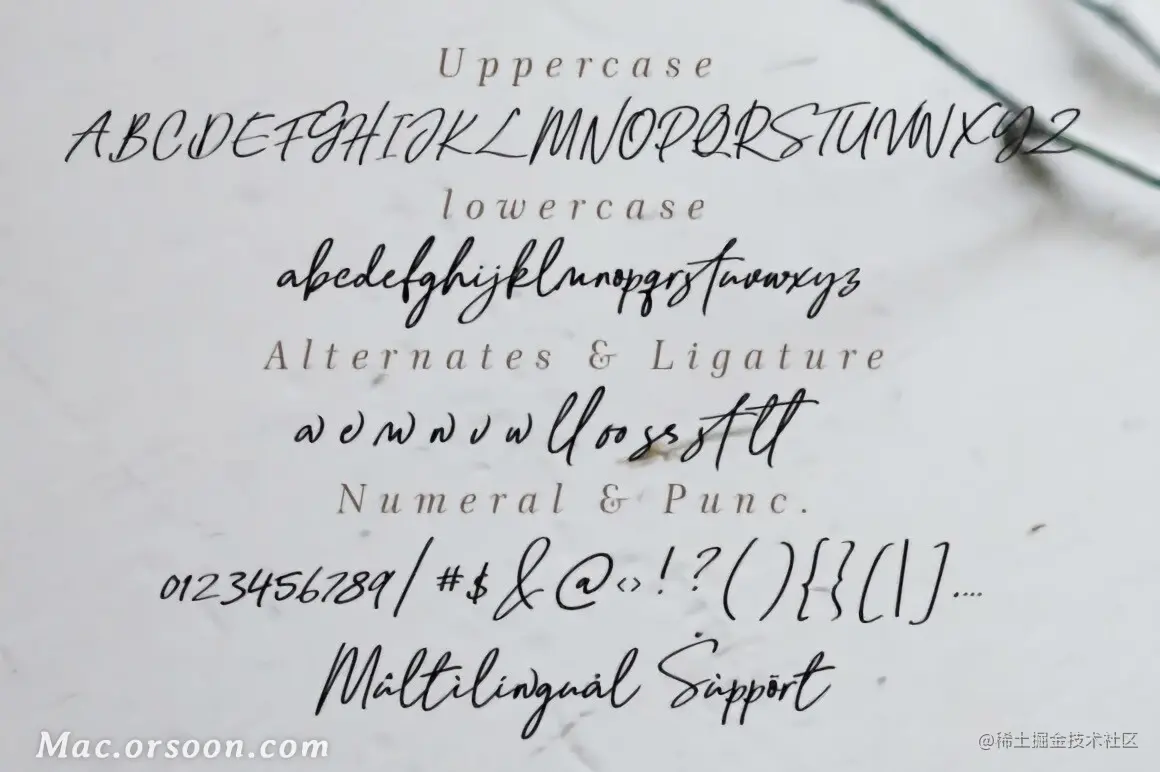 Uppercase
ABCDEFGHIJKLMNOPQRSTUVWXYZ
lowercase
abcdefghijklmnopqrstuvwxyz
Alternates & Ligature
a e m n v w ll oo ss st tt
Numeral & Punc.
0123456789/ #$&@<>!?(){}(|]....
Multilingual Support
Mac.orsoon.com
@稀土掘金技术社区